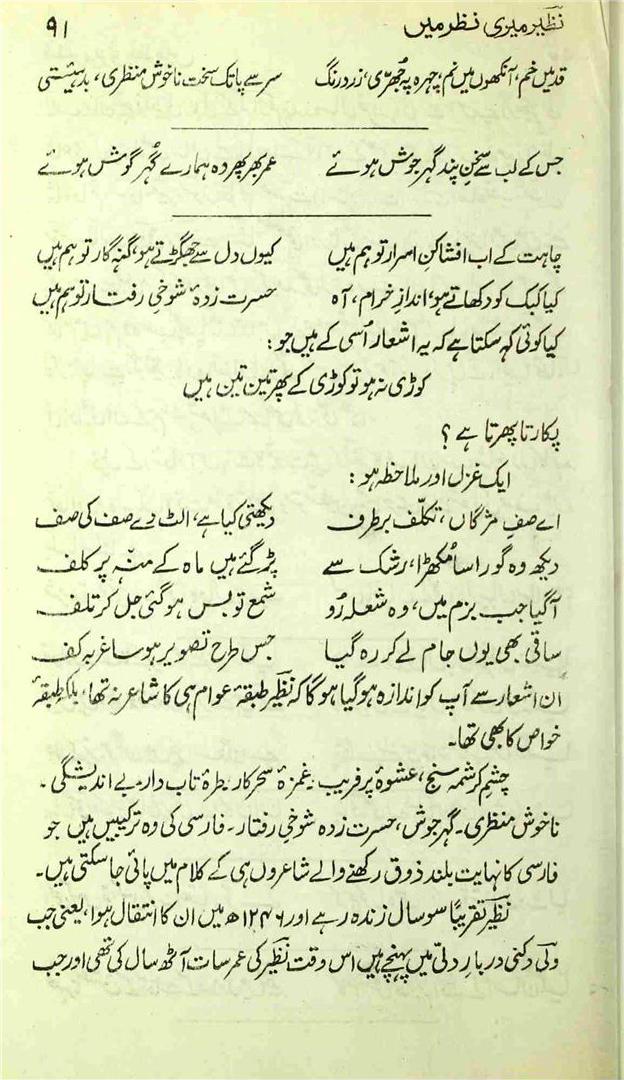 نظیر میری نظر میں ۹۱
قد میں خم، آنکھوں میں نم، چہرہ پہ جھُرّی، زرد رنگ سر سے پا تک سخت ناخوش منظری، بد ہیئتی
جس کے لب سے سخنِ پند گہر جوش ہوئے عمر بھر پھر وہ ہمارے گُہرِ گوش ہوئے
چاہت کے اب افشا کنِ اسرار تو ہم ہیں کیوں دل سے جھگڑتے ہو، گنہ گار تو ہم ہیں
کیا کبک کو دکھاتے ہو، اندازِ خرام، آہ حسرت زدۂ شوخیِ رفتار تو ہم ہیں
کیا کوئی کہہ سکتا ہے کہ یہ اشعار اُسی کے ہیں جو :
کوڑی نہ ہو تو کوڑی کے پھر تین تین ہیں
پکارتا پھرتا ہے ؟
ایک غزل اور ملاحظہ ہو :
اے صفِ مژگاں، تکلّف برطرف دیکھتی کیا ہے، الٹ دے صف کی صف
دیکھ وہ گورا سا مُکھڑا، رشک سے پڑ گئے ہیں ماہ کے منہ پر کلف
آ گیا جب بزم میں، وہ شعلہ رُو شمع تو بس ہو گئی جل کر تلف
ساقی بھی یوں جام لے کر رہ گیا جس طرح تصویر ہو ساغر بہ کف
ان اشعار سے آپ کو اندازہ ہو گیا ہوگا کہ نظیر طبقۂ عوام ہی کا شاعر نہ تھا، بلکہ طبقۂ
خواص کا بھی تھا۔
چشمِ کرشمہ سنج، عشوۂ پر فریب۔ غمزۂ سحر کار۔ طرۂ تاب دار۔ بے اندیشگی ۔
ناخوش منظری۔ گہر جوش، حسرت زدہ شوخیِ رفتار۔ فارسی کی وہ ترکیبیں ہیں جو
فارسی کا نہایت بلند ذوق رکھنے والے شاعروں ہی کے کلام میں پائی جا سکتی ہیں۔
نظیر تقریباً سو سال زندہ رہے اور ۱۲۴۶ھ میں ان کا انتقال ہوا، یعنی جب
ولی دکنی دربارِ دلّی میں پہنچے ہیں اس وقت نظیر کی عمر سات آٹھ سال کی تھی اور جب